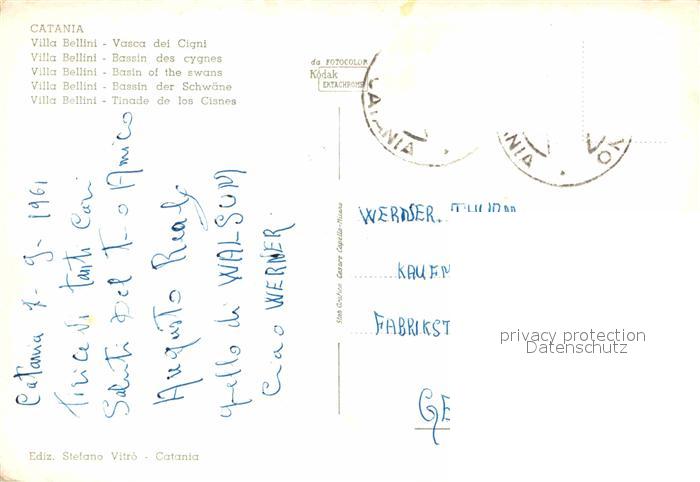 CATANIA
Villa Bellini - Vasca dei Cigni
Villa Bellini - Bassin des cygnes
Villa Bellini - Basin of the swans
Villa Bellini - Bassin der Schwäne
Villa Bellini - Tinade de los Cisnes
da FOTOCOLOR
Kodak
EKTACHROME
CATANIA
Catania 1961
tanti Cari
Saluti Del Tuo Amico
Augusto
quello di WALSUM
Ciao WERNER
Ediz. Stefano Vitrò - Catania
WERNER
KAUFN
FABRIKST
GE
privacy protection
Datenschutz